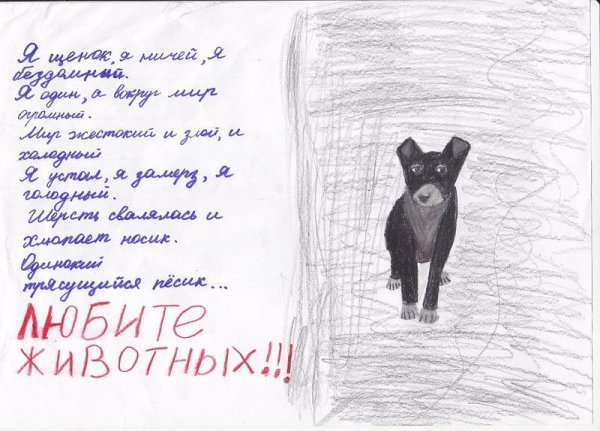 Я щенок, я ничей, я
бездомный.
Я один, а вокруг мир
огромный.
Мир жестокий и злой, и
холодный
Я устал, я замерз, я
голодный.
Шерсть свалялась и
хлюпает носик.
Одинокий
трясущийся пёсик...
ЛЮБИТЕ
ЖИВОТНЫХ!!!